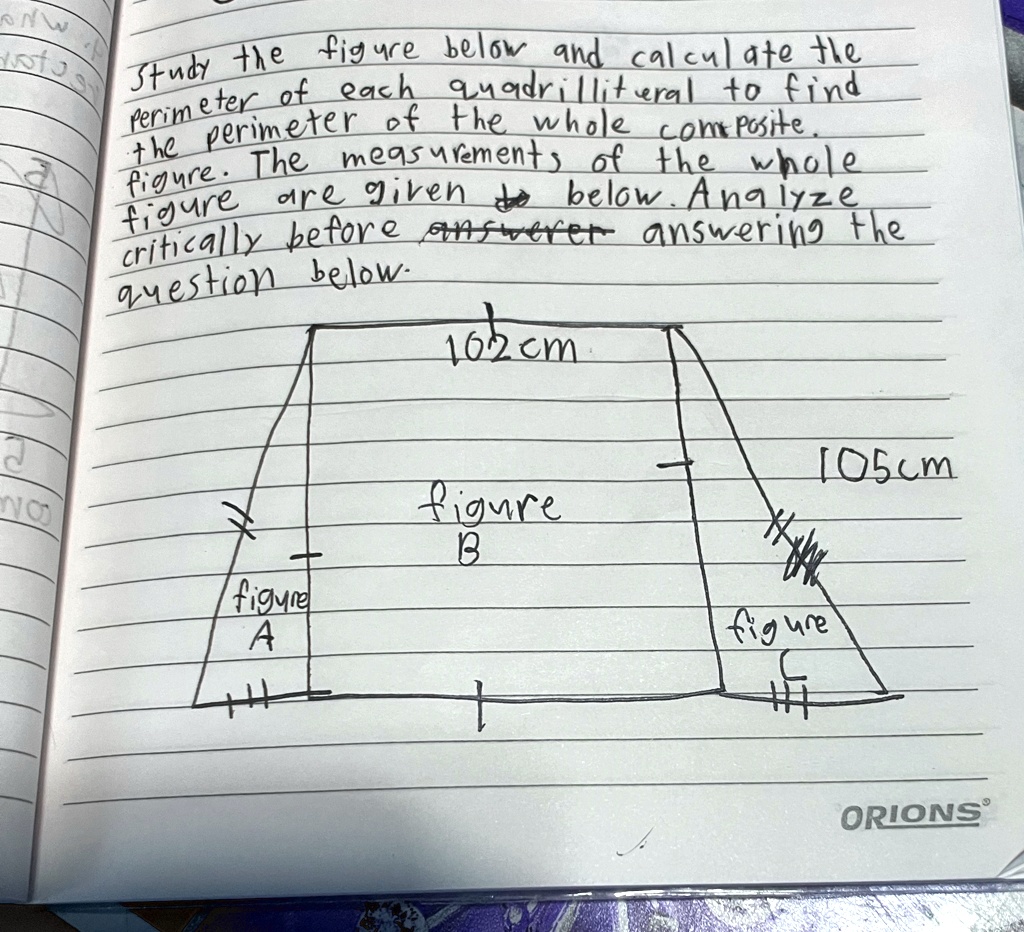 Study the figure below and calculate the
perimeter of each quadrilliteral to find
the perimeter of the whole composite.
figure. The measurements of the whole
figure are given below. Analyze
critically before answerer answering the
question below.
102cm
105cm
figure
B
figure
A
figure
C
ORIONS®